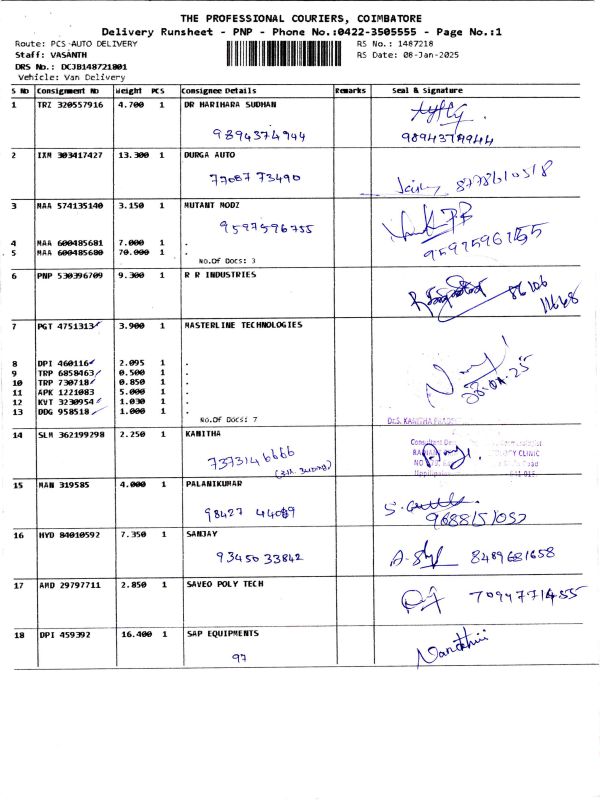 THE PROFESSIONAL COURIERS, COIMBATORE
Delivery Runsheet - PNP - Phone No.:0422-3505555 - Page No.:1
Route: PCS AUTO DELIVERY RS No.: 1487218
Staff: VASANTH RS Date: 08-Jan-2025
DRS No.: DCJB148721801
Vehicle: Van Delivery
S No Consignment No Weight PCS Consignee Details Remarks Seal & Signature
1 TRZ 320557916 4.700 1 DR HARIHARA SUDHAN
9894374944
2 IXM 303417427 13.300 1 DURGA AUTO
77087 73490
8778610518
3 MAA 574135140 3.150 1 MUTANT MODZ
9597596755
4 MAA 600485681 7.000 1 .
5 MAA 600485680 70.000 1 .
No.Of Docs: 3
6 PNP 530396709 9.300 1 R R INDUSTRIES
86106
11668
7 PGT 4751313 3.900 1 MASTERLINE TECHNOLOGIES
8 DPI 460116 2.095 1 .
9 TRP 6858463 0.500 1 .
10 TRP 730718 0.850 1 .
11 APK 1221083 5.000 1 .
12 KVT 3230954 1.030 1 .
13 DDG 958518 1.000 1 .
No.Of Docs: 7
08-01-25
Dr.S. KANITHA
14 SLM 362199298 2.250 1 KANITHA
7373146666
CLINIC
15 MAN 319585 4.000 1 PALANIKUMAR
98427 44089
9688151057
16 HYD 84010592 7.350 1 SANJAY
93450 33842
8489681658
17 AMD 29797711 2.850 1 SAVEO POLY TECH
7094771455
18 DPI 459392 16.400 1 SAP EQUIPMENTS
97
Nandhini